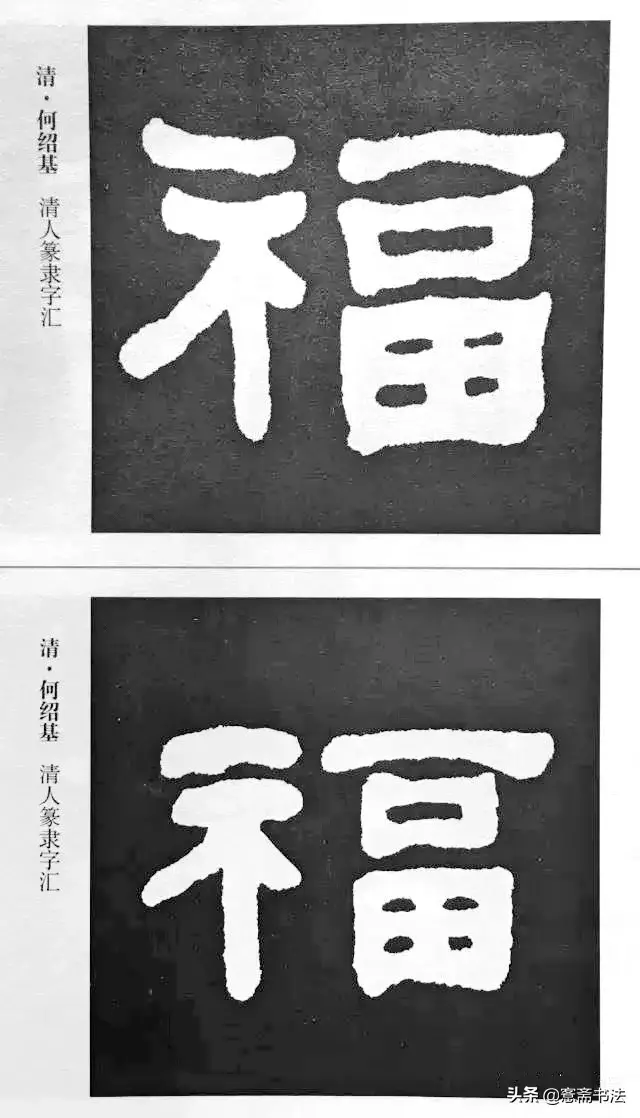 清·何绍基 清人篆隶字汇
福
清·何绍基 清人篆隶字汇
福
头条@意斋书法